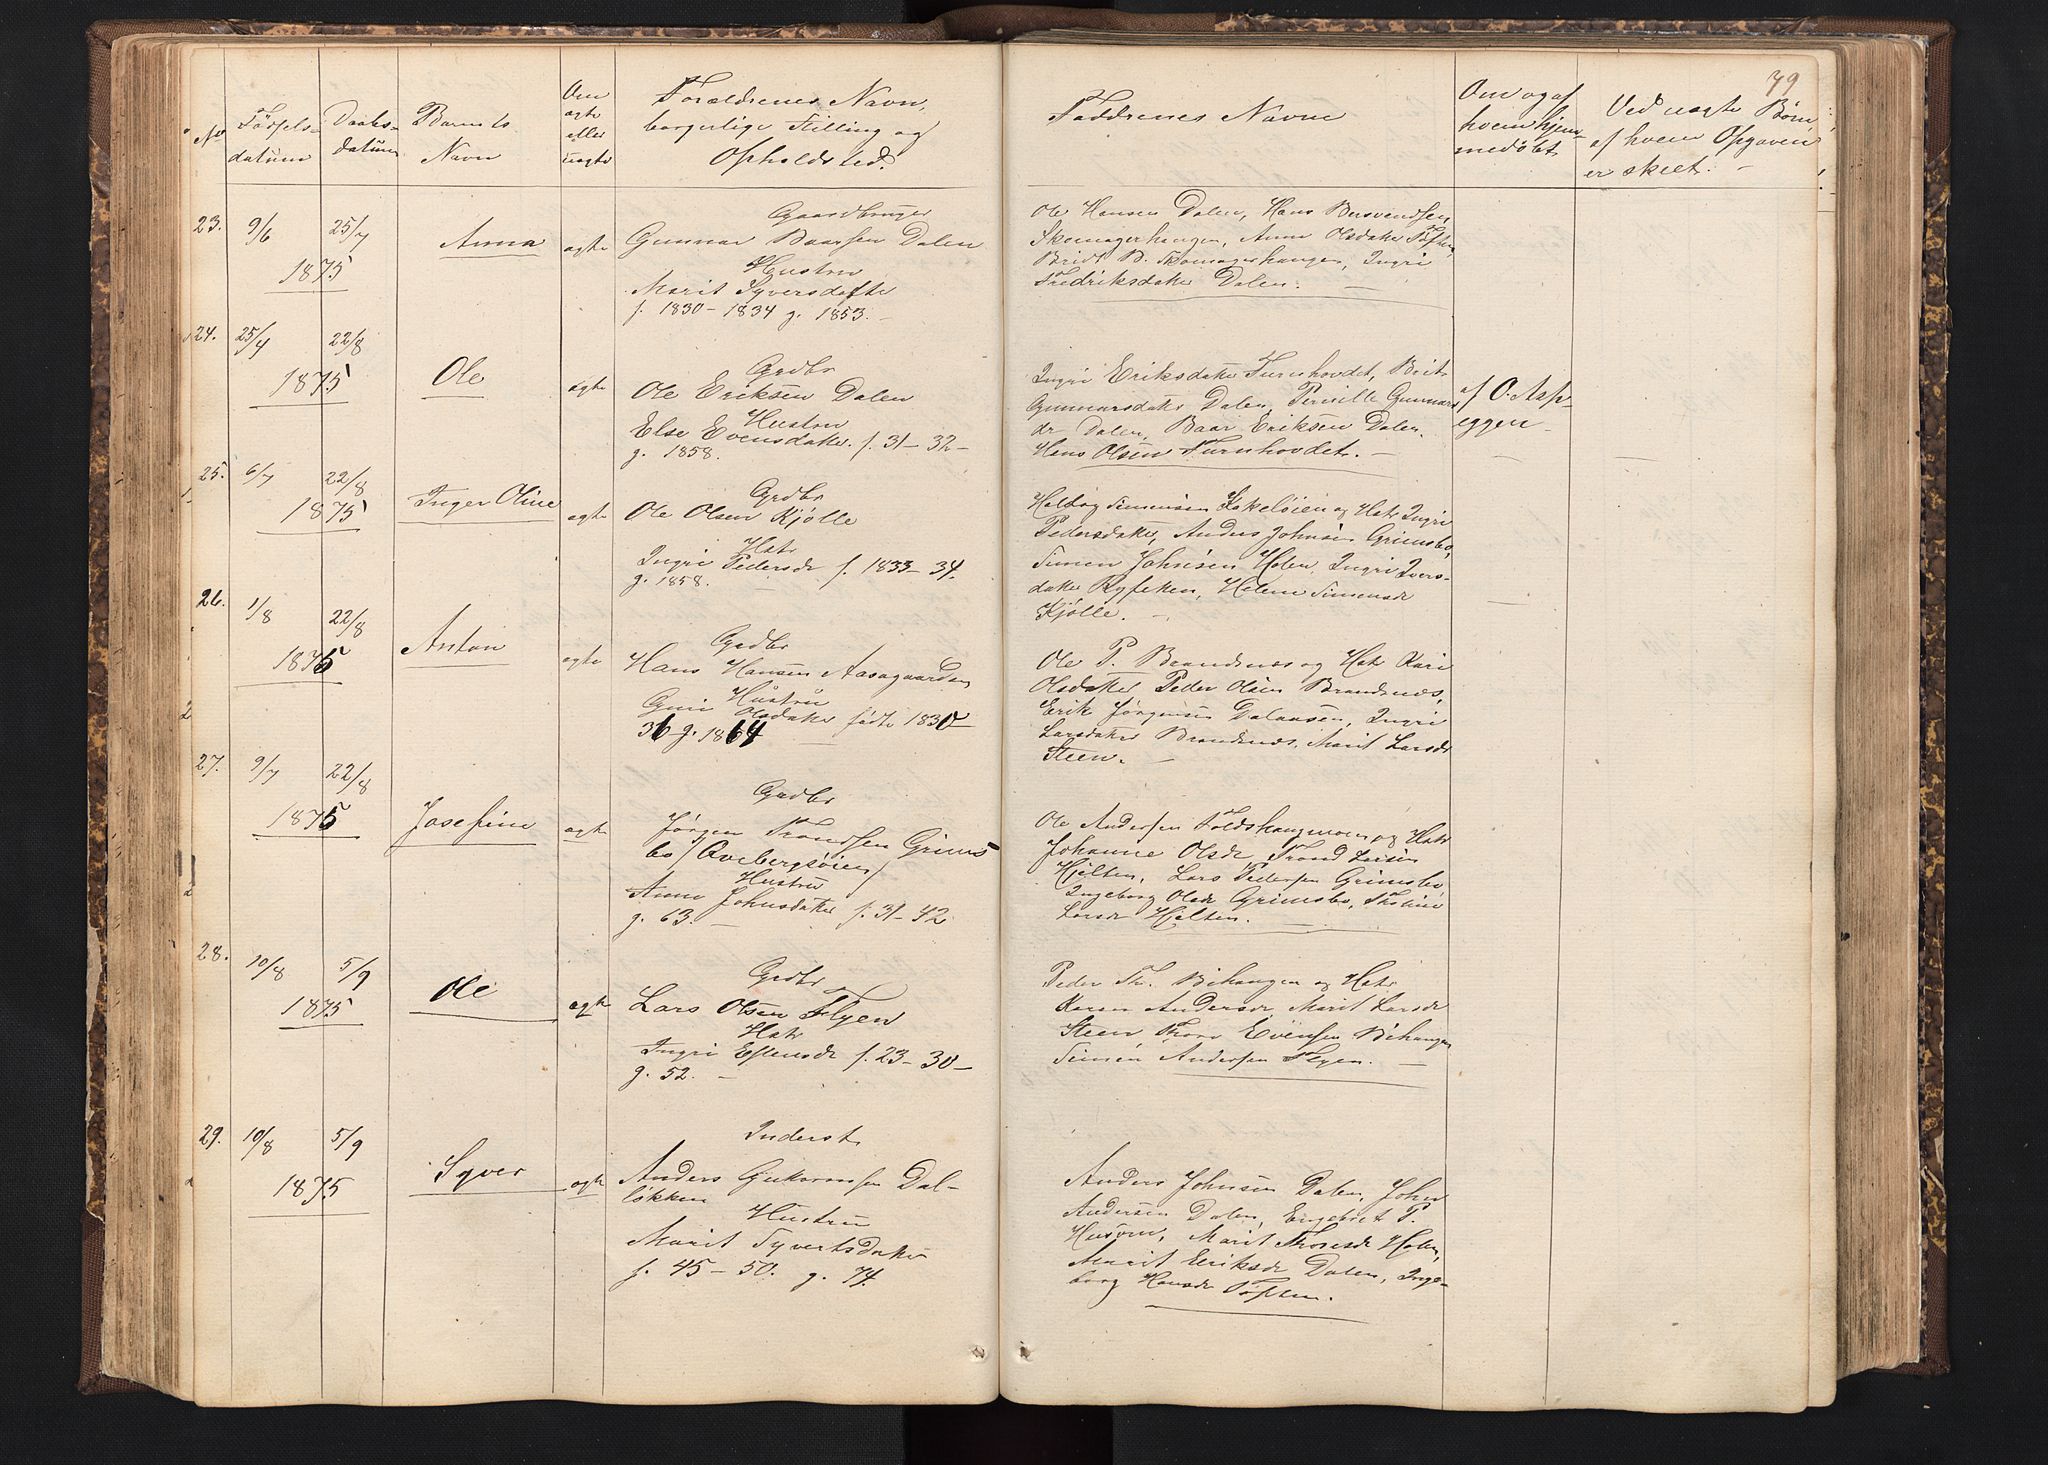 79
No
Fødsels-
datum
Daabs-
datum
Barnets
Navn
Om
ægte
eller
uægte
Forældrenes Navn,
borgerlige Stilling og
Opholdsted.
Faddrenes Navne
Om og af
hvem hjem-
medøbt
Ved uægte Børn,
af hvem Opgaven
er skeet. -
23.
9/6
25/7
1875
Anna
ægte
Gaardbruger
Gunnar Baarsen Dalen
Hustru
Marit Syversdatte
f. 1830 - 1834 g. 1853. -
Ole Hansen Dalen, Hans
Skomagerhaugen, Anne Olsdatter
Skomagerhaugen, Ingri
Fredriksdatter Dalen. -
24.
25/4
22/8
1875
Ole
ægte
Grdbr
Ole Eriksen Dalen
Hustru
Else Evensdatter. f. 31 - 32 -
g. 1858.
Ingri Eriksdatter Turnhovdet, Brit
Gunnarsdatter Dalen, Pernille Gunnars
dr Dalen, Baar Eriksen Dalen.
Hans Olsen Turnhovdet. -
af O. Aasp-
eggen
25.
6/7
22/8
1875
Inger Oline
ægte
Grdbr
Ole Olsen Kjølle
Hstr
Ingri Pedersdr f. 1833 - 34.
g. 1858.
Simensen og Hstr Ingri
Pedersdatter, Anders Johnsen Grimsbo,
Simen Johnsen Holen, Ingri Ivers-
datter Helene Simensdr
Kjølle. -
26.
1/8
22/8
1875
Anton
ægte
Grdbr
Hans Hansen Aasagaarden
Hustru
Guri Olsdatter fødte 1830 -
36 g. 1864
Ole P. Brandsnæs og Hstr Kari
Olsdatter Peder Olsen Brandsnæs,
Erik Jørgensen Dalaasen, Ingri
Larsdatter Brandsnæs, Marit Larsdr
Steen. -
27.
9/7
22/8
1875
Josefine
ægte
Grdbr
Jørgen Trondsen Grims
bo /Qvebergsøien/
Hustru
Anne Johnsdatter f. 31 - 42
g. 63. -
Ole Andersen og Hstr
Johanne Olsdr Trond Larsen
Hjelten, Lars Pedersen Grimsbo,
Ingeborg Olsdr Grimsbo,
Larsdr Hjelten.
28.
10/8
5/9
1875
Ole
ægte
Grdbr
Lars Olsen Flyen
Hstr
Ingri Estensdr f. 23 - 30 -
g. 52. -
Peder Th. Bihaugen og Hstr
Karen Andersdr Marit Larsdr
Steen Thore Evensen Bihaugen
Simen Andersen Flyen. -
29.
10/8
5/9
1875
Syver
ægte
Inderst
Anders Guttormsen Dal-
løkken
Hustru
Marit Syvertsdatter
f. 45 - 50. g. 74.
Anders Johnsen Dalen, John
Andersen Dalen, Engebret P.
Husom, Marit Thoresdr Holen,
Marit Eriksdr Dalen, Inge-
borg Hansdr Toften.